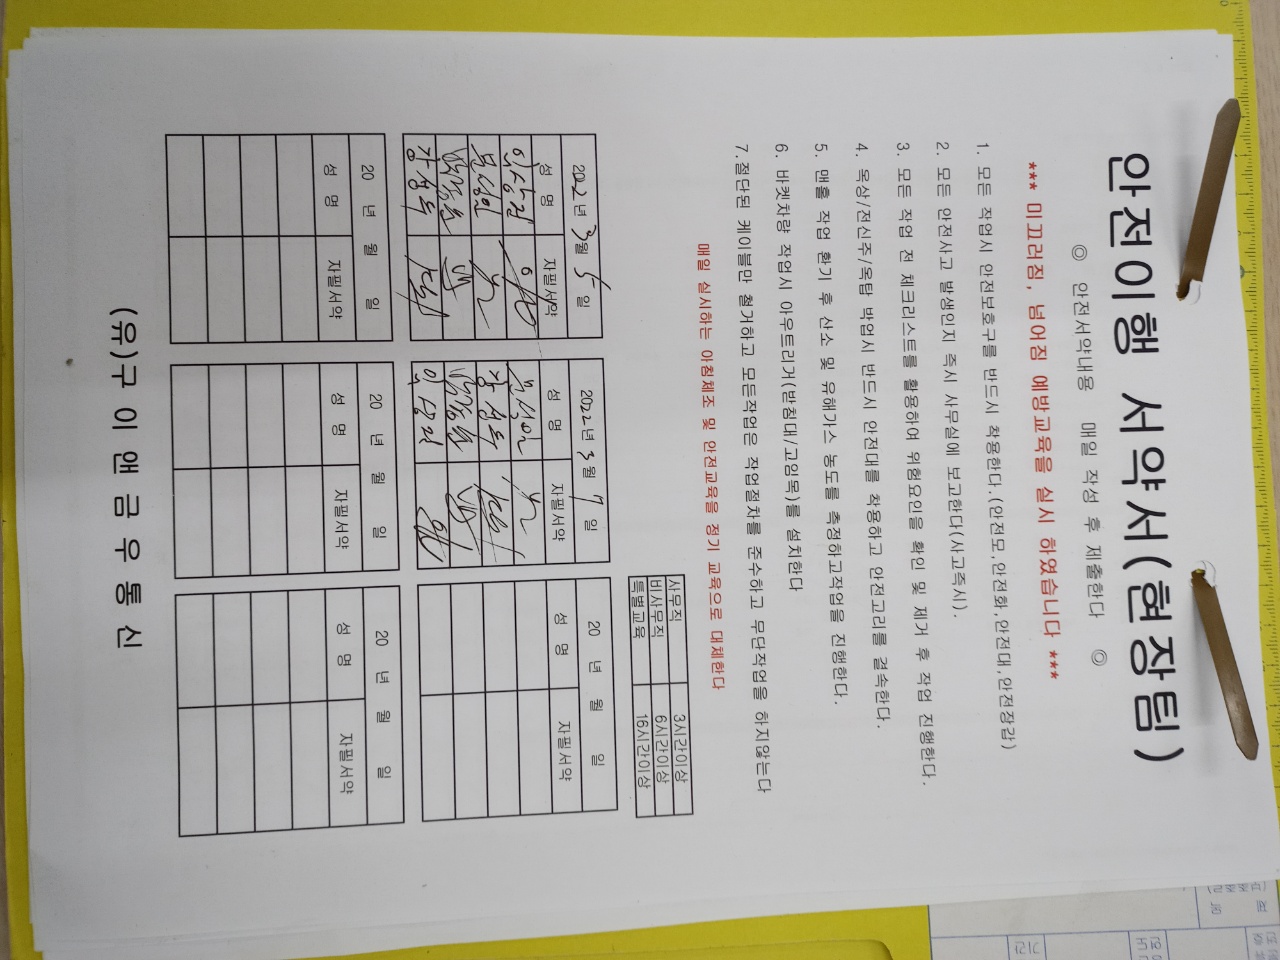 안전이행 서약서(현장팀)
◎ 안전서약내용 매일 작성 후 제출한다 ◎
*** 미끄러짐, 넘어짐 예방교육을 실시 하였습니다 ***
1. 모든 작업시 안전보호구를 반드시 착용한다.(안전모,안전화,안전대,안전장갑)
2. 모든 안전사고 발생인지 즉시 사무실에 보고한다(사고즉시).
3. 모든 작업 전 체크리스트를 활용하여 위험요인을 확인 및 제거 후 작업 진행한다.
4. 옥상/전신주/옥탑 박업시 반드시 안전대를 착용하고 안전고리를 결속한다.
5. 맨홀 작업 환기 후 산소 및 유해가스 농도를 측정하고작업을 진행한다.
6. 바켓차량 작업시 아우트리거(받침대/고임목)를 설치한다
7. 절단된 케이블만 철거하고 모든작업은 작업절차를 준수하고 무단작업을 하지않는다
매일 실시하는 아침체조 및 안전교육을 정기 교육으로 대체한다
사무직 3시간이상
비사무직 6시간이상
특별교육 16시간이상
2022년 3월 5일 2022년 3월 7일 20 년 월 일
성 명 자필서약 성 명 자필서약 성 명 자필서약
20 년 월 일 20 년 월 일 20 년 월 일
성 명 자필서약 성 명 자필서약 성 명 자필서약
(유)구이앤금우통신